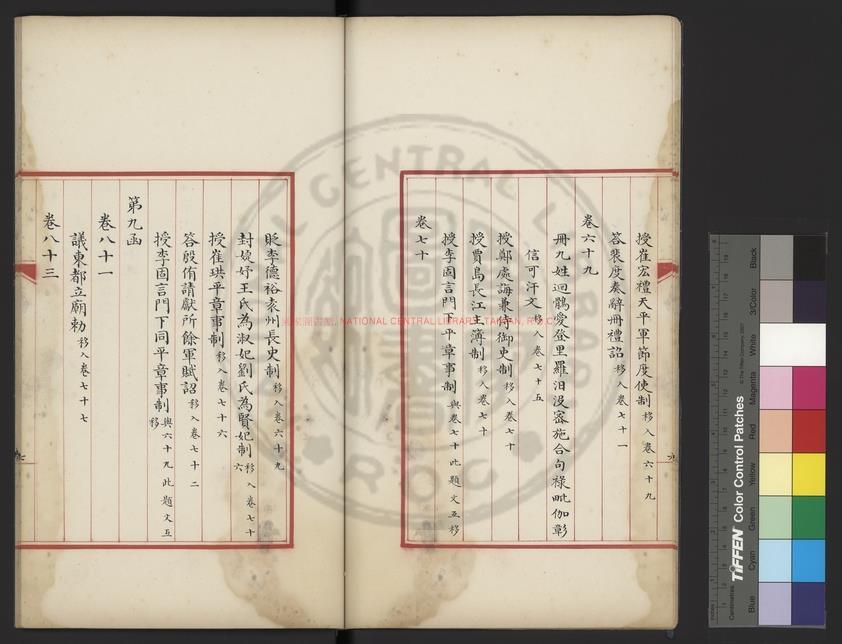 授崔宏禮天平軍節度使制移入卷六十九
答裴度奏辭冊禮詔移入卷七十一
卷六十九
冊九姓迴鶻愛登里羅汨沒密施合句祿毗伽彰
信可汗文移入卷七十五
授鄭處誨兼侍御史制移入卷七十
授賈島長江主簿制移入卷七十
授李固言門下平章事制與卷七十此題文互移
卷七十
貶李德裕袁州長史制移入卷六十九
封婕妤王氏為淑妃劉氏為賢妃制移入卷七十六
授崔珙平章事制移入卷七十六
答殷侑請獻所餘軍賦詔移入卷七十二
授李固言門下同平章事制與六十九此題文互移
第九函
卷八十一
議東都立廟勅移入卷七十七
卷八十三
國家圖書館, NATIONAL CENTRAL LIBRARY, TAIWAN, R.O.C
NATIONAL CENTRAL LIBRARY
ROC
TIFFEN Color Control Patches
© The Tiffen Company, 2007
Blue
Cyan
Green
Yellow
Red
Magenta
White
3/Color
Black
Centimetres
Inches